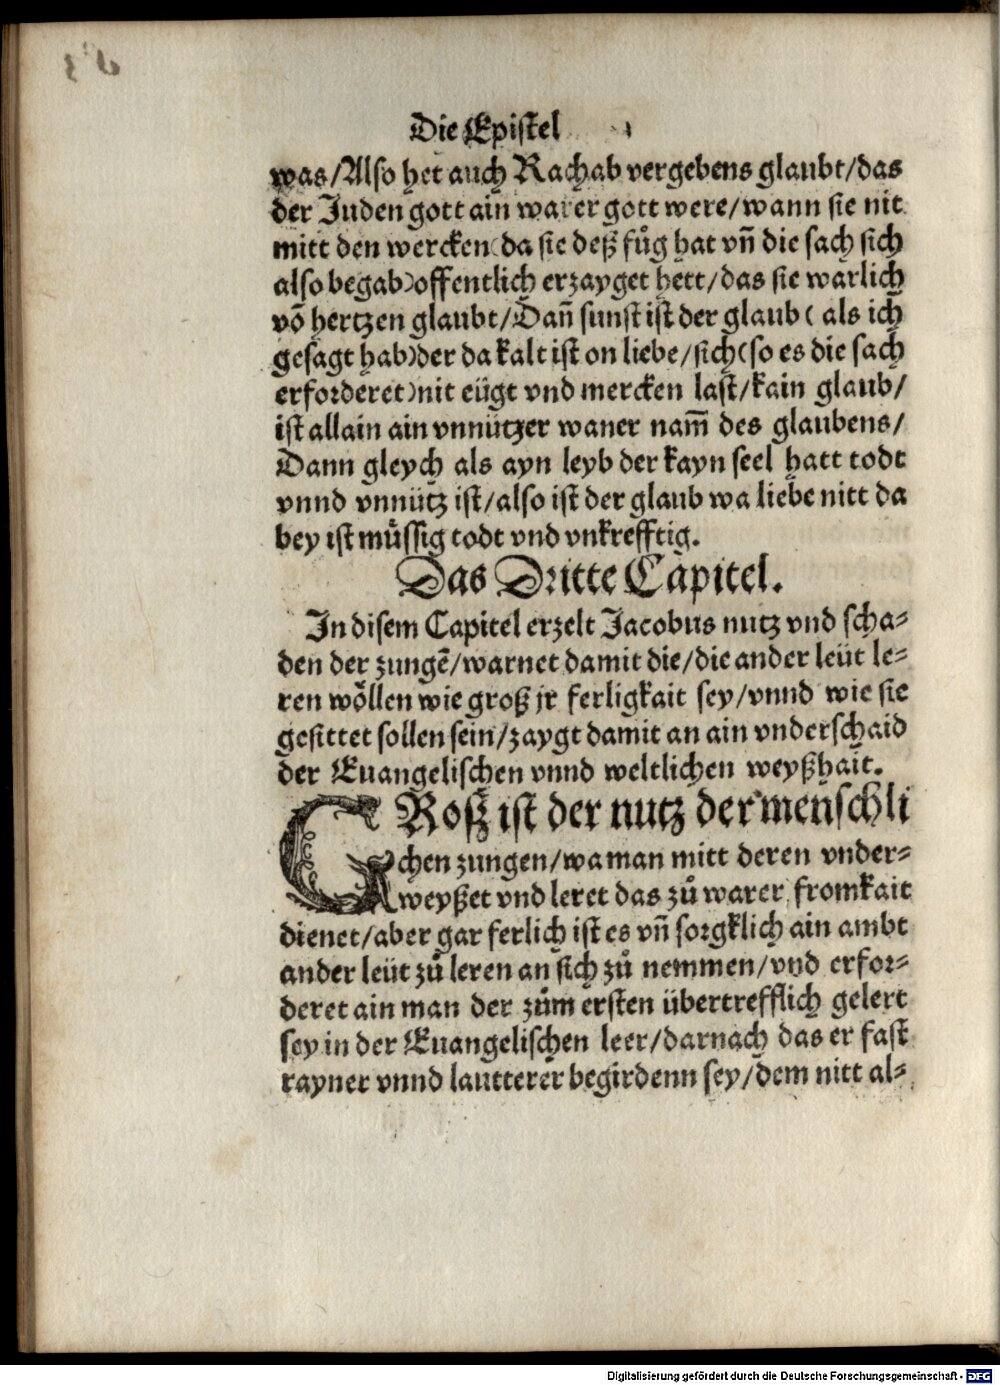 Die Epistel
was/Also het auch Rachab vergebens glaubt/das
der Juden gott ain warer gott were/wann sie nit
mitt den wercken(da sie deß fůg hat vñ die sach sich
also begab)offentlich erzayget hett/das sie warlich
võ hertzen glaubt/Dañ sunst ist der glaub( als ich
gesagt hab)der da kalt ist on liebe/sich(so es die sach
erforderet)nit eügt vnd mercken last/kain glaub/
ist allain ain vnnützer waner nam̃ des glaubens/
Dann gleych als ayn leyb der kayn seel hatt todt
vnnd vnnütz ist/also ist der glaub wa liebe nitt da
bey ist müssig todt vnd vnkrefftig.
Das Dritte Capitel.
In disem Capitel erzelt Jacobus nutz vnd scha-
den der zungẽ/warnet damit die/die ander leüt le-
ren wöllen wie groß jr ferligkait sey/vnnd wie sie
gesittet sollen sein/zaygt damit an ain vnderschaid
der Euangelischen vnnd weltlichen weyßhait.
GRoß ist der nutz der menschli
chen zungen/wa man mitt deren vnder-
weyßet vnd leret das zů warer fromkait
dienet/aber gar ferlich ist es vñ sorgklich ain ambt
ander leüt zů leren an sich zů nemmen/vnd erfor-
deret ain man der zům ersten übertrefflich gelert
sey in der Euangelischen leer/darnach das er fast
rayner vnnd lautterer begirdenn sey/dem nitt al-
Digitalisierung gefördert durch die Deutsche Forschungsgemeinschaft - DFG